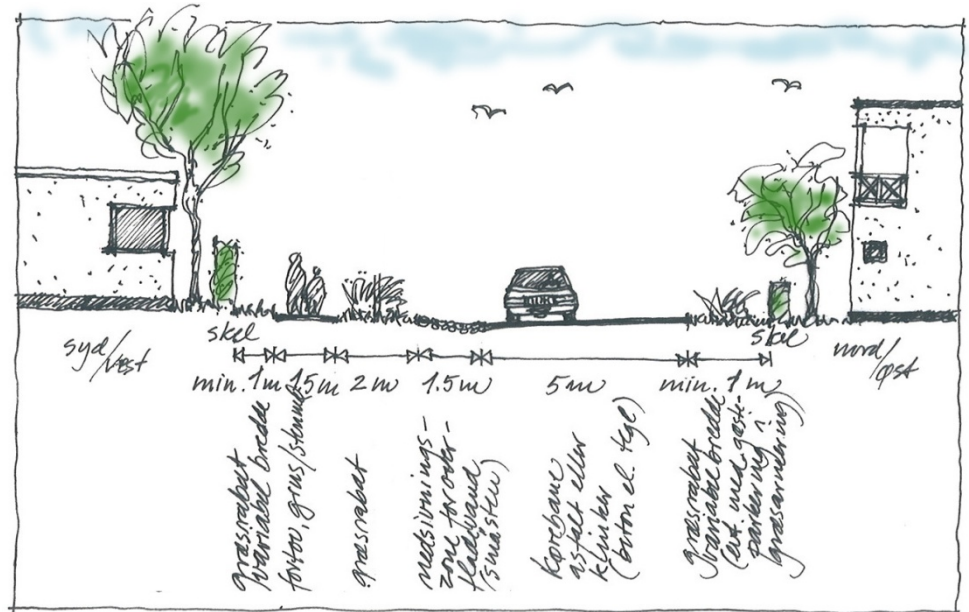 skel
skel
syd/vest
nord/øst
min. 1m 1,5m 2m 1.5m 5m min. 1m
græsrabat
variabel bredde
fortov, grus/stenmel
græsrabat
nedsivnings-
zone for over-
fladevand
(småsten)
kørebane
asfalt eller
klinker
(beton el. tegl)
græsrabat
variabel bredde
(evt. med gæste-
parkering i
græsarmering)